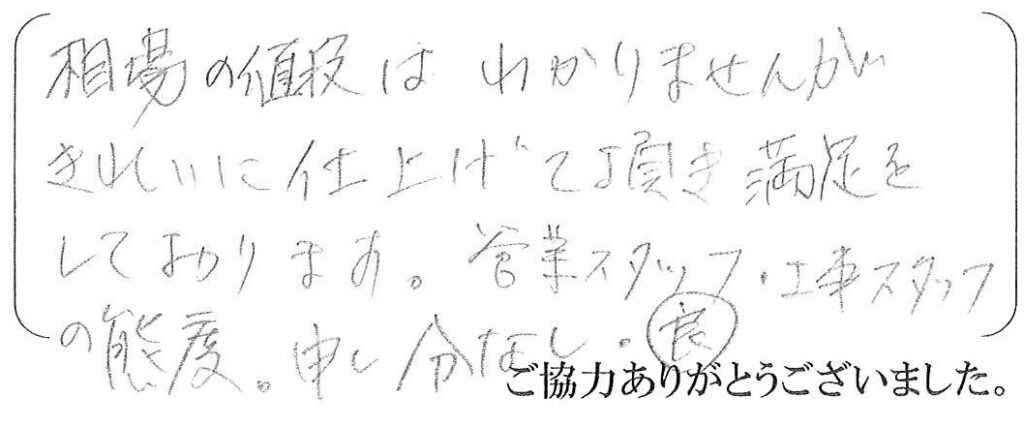 相場の値段は わかりませんが
きれいに仕上げて頂き満足を
しております。営業スタッフ・工事スタッフ
の態度。申し分なし。良
ご協力ありがとうございました。